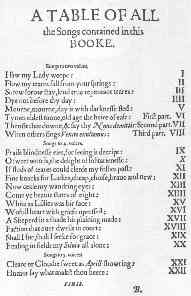 A TABLE OF ALL
the Songs contained in this
BOOKE.
Songs to two voices.
I saw my Lady weepe: I
Flow my teares fall from your springs: II
Sorrow sorrow stay, lend true repentant teares: III
Dye not before thy day: IIII
Mourne, mourne, day is with darknesse fled: V
Tymes eldest sonne, old age the heire of ease: First part. VI
Then sit thee downe, & say thy Nunc demittis: Second part. VII
When others sings Venite exultemus: Third part. VIII
Songs to 4. voices.
Praise blindnesse eies, for seeing is deceipt: IX
O sweet woods, the delight of solitarienesse: X
If fluds of teares could clense my follies past: XI
Fine knacks for Ladies, cheap, choise, brave and new: XII
Now cease my wandring eyes: XIII
Come ye heavie states of night: XIIII
White as Lillies was hir face: XV
Wofull heart with griefe opressed: XVI
A Sheperd in a shade his plaining made: XVII
Faction that ever dwels in court: XVIII
Shall I sue, shall I seeke for grace: XIX
Finding in fields my Silvia all alone: XX
Songs to 5. voices.
Cleare or Cloudie sweet as April showring: XXI
Humor say what makst thou heere: XXII
FINIS.
B.